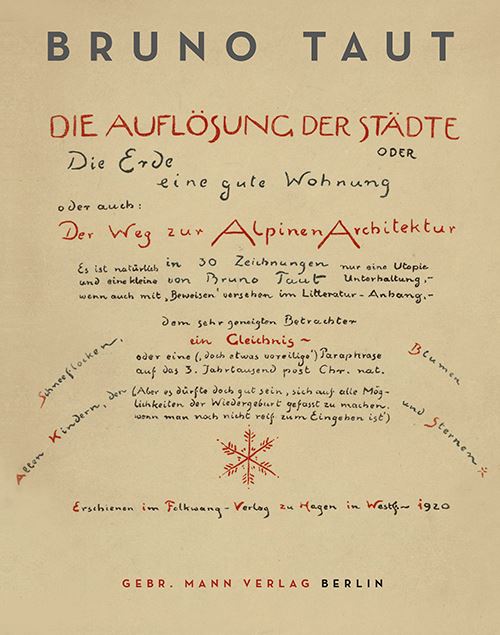 BRUNO TAUT
DIE AUFLÖSUNG DER STÄDTE
ODER
Die Erde
eine gute Wohnung
oder auch:
Der Weg zur Alpinen Architektur
Es ist natürlich in 30 Zeichnungen nur eine Utopie
und eine kleine von Bruno Taut Unterhaltung,-
wenn auch mit ‚Beweisen' versehen im Litteratur-Anhang,-
dem sehr geneigten Betrachter
ein Gleichnis~
oder eine (‚doch etwas voreilige') Paraphrase
auf das 3. Jahrtausend post Chr. nat.
(Aber es dürfte doch gut sein, sich auf alle Mög-
lichkeiten der Wiedergeburt gefasst zu machen,
wenn man noch nicht reif zum Eingehen ist)
Allen Kindern, den Schneeflocken,
Blumen und Sternen
Erschienen im Folkwang-Verlag zu Hagen in Westf~ 1920
GEBR. MANN VERLAG BERLIN